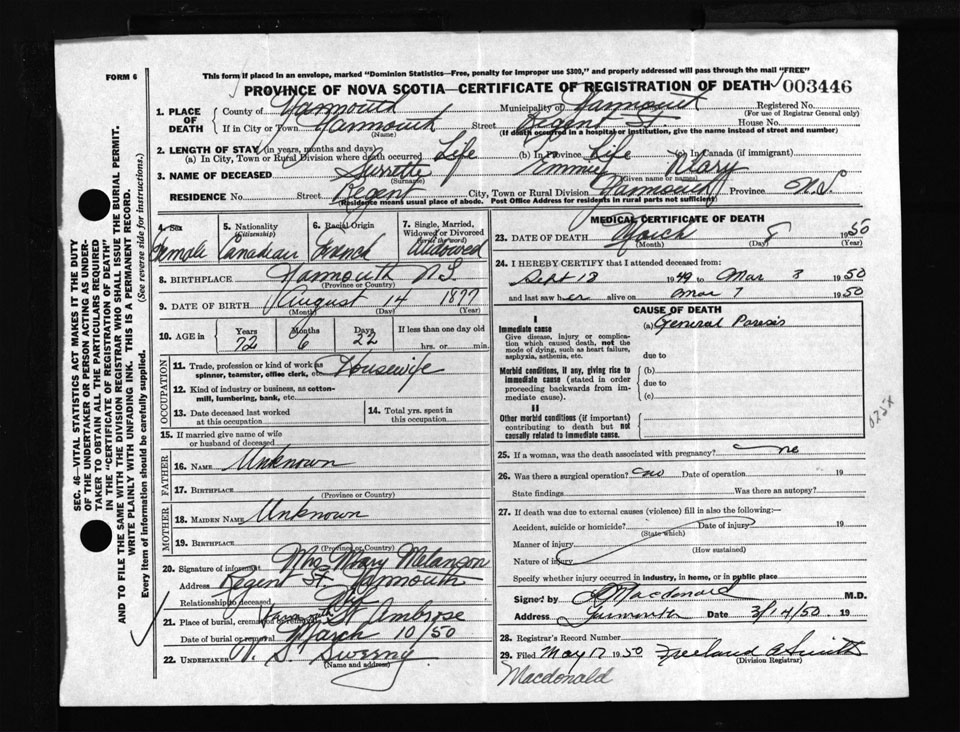 FORM 6
This form if placed in an envelope, marked "Dominion Statistics—Free, penalty for improper use $300," and properly addressed will pass through the mail "FREE"
PROVINCE OF NOVA SCOTIA—CERTIFICATE OF REGISTRATION OF DEATH 003446
1. PLACE OF DEATH County of Yarmouth Municipality of Yarmouth Registered No.
(For use of Registrar General only)
If in City or Town Yarmouth Street Regent St. House No.
(Name) (If death occurred in a hospital or institution, give the name instead of street and number)
2. LENGTH OF STAY (in years, months and days)
(a) In City, Town or Rural Division where death occurred Life (b) In Province Life (c) In Canada (if immigrant)
3. NAME OF DECEASED Surrette Emmie Mary
(Surname) (Given name or names)
RESIDENCE No. Street Regent City, Town or Rural Division Yarmouth Province N.S.
(Residence means usual place of abode. Post Office Address for residents in rural parts not sufficient)
4. Sex Female
5. Nationality (Citizenship) Canadian
6. Racial Origin French
7. Single, Married, Widowed or Divorced (write the word) Widowed
8. BIRTHPLACE Yarmouth N.S.
(Province or Country)
9. DATE OF BIRTH August 14 1877
(Month) (Day) (Year)
10. AGE in Years 72 Months 6 Days 22 If less than one day old hrs. or min.
OCCUPATION
11. Trade, profession or kind of work as spinner, teamster, office clerk, etc. Housewife
12. Kind of industry or business, as cotton-mill, lumbering, bank, etc.
13. Date deceased last worked at this occupation
14. Total yrs. spent in this occupation
15. If married give name of wife or husband of deceased
FATHER
16. NAME Unknown
17. BIRTHPLACE
(Province or Country)
MOTHER
18. MAIDEN NAME Unknown
19. BIRTHPLACE
(Province or Country)
20. Signature of informant Mrs Mary Melanson
Address Regent St Yarmouth
Relationship to deceased
21. Place of burial, cremation or removal Yarmouth St Ambrose
Date of burial or removal March 10/50
22. UNDERTAKER V. S. Sweeny
(Name and address)
MEDICAL CERTIFICATE OF DEATH
23. DATE OF DEATH March 8 1950
(Month) (Day) (Year)
24. I HEREBY CERTIFY that I attended deceased from:
Sept 13 1949 to Mar 3 1950
and last saw her alive on Mar 7 1950
CAUSE OF DEATH
I
Immediate cause (a) General Paresis
Give disease, injury or complication which caused death, not the mode of dying, such as heart failure, asphyxia, asthenia, etc.
due to
Morbid conditions, if any, giving rise to immediate cause (stated in order proceeding backwards from immediate cause).
(b)
due to
(c)
II
Other morbid conditions (if important) contributing to death but not causally related to immediate cause.
025X
25. If a woman, was the death associated with pregnancy? no
26. Was there a surgical operation? no Date of operation 19
State findings Was there an autopsy?
27. If death was due to external causes (violence) fill in also the following:—
Accident, suicide or homicide? Date of injury 19
(State which)
Manner of injury
(How sustained)
Nature of injury
Specify whether injury occurred in industry, in home, or in public place
Signed by Macdonald M.D.
Address Yarmouth Date 3/14/50 19
28. Registrar's Record Number
29. Filed May 17 1950 Freeland A Smith
(Division Registrar)
Macdonald
SEC. 46—VITAL STATISTICS ACT MAKES IT THE DUTY
OF THE UNDERTAKER OR PERSON ACTING AS UNDERTAKER TO OBTAIN ALL THE PARTICULARS REQUIRED
IN THE "CERTIFICATE OF REGISTRATION OF DEATH"
AND TO FILE THE SAME WITH THE DIVISION REGISTRAR WHO SHALL ISSUE THE BURIAL PERMIT.
WRITE PLAINLY WITH UNFADING INK. THIS IS A PERMANENT RECORD.
Every item of information should be carefully supplied. (See reverse side for instructions.)